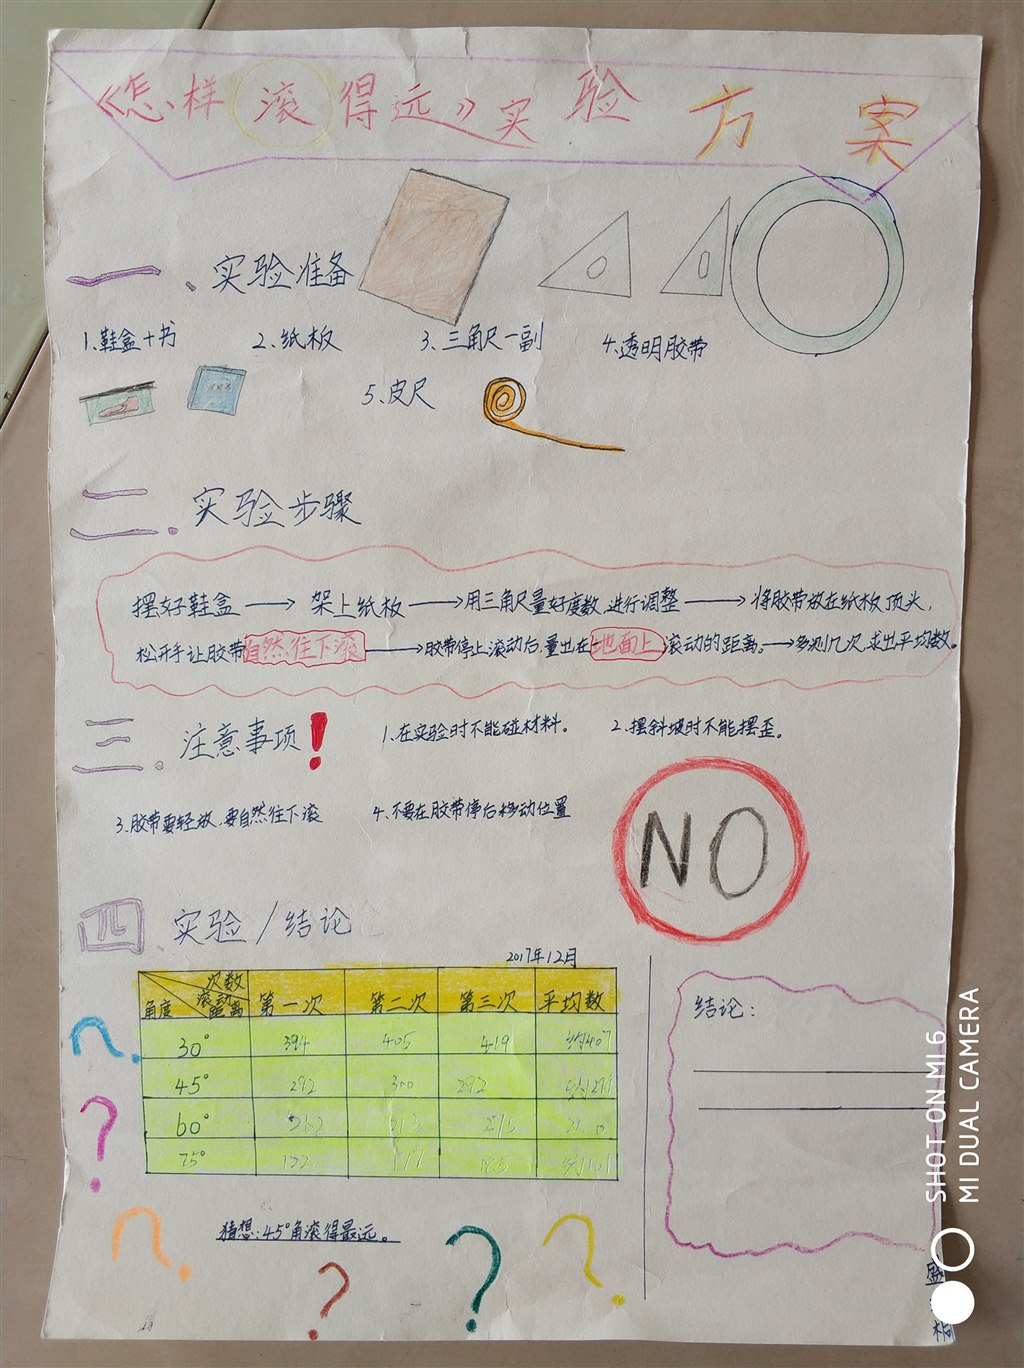 《怎样滚得远》实验方案
一、实验准备
1、鞋盒+书 2、纸板 3、三角尺一副 4、透明胶带
5、皮尺
二、实验步骤
摆好鞋盒→架上纸板→用三角尺量好度数,进行调整→将胶带放在纸板顶头,
松开手让胶带自然往下滚→胶带停止滚动后,量出在地面上滚动的距离。→多测几次,求出平均数。
三、注意事项!
1、在实验时不能碰材料。 2、摆斜坡时不能摆歪。
3、胶带要轻放,要自然往下滚 4、不要在胶带停后移动位置
NO
四、实验/结论
2017年12月
次数 滚动距离 角度 第一次 第二次 第三次 平均数
30° 394 405 419 约407
45° 292 300 292
60° 262
75°
猜想:45°角滚得最远。
结论:
SHOT ON MI 6
MI DUAL CAMERA